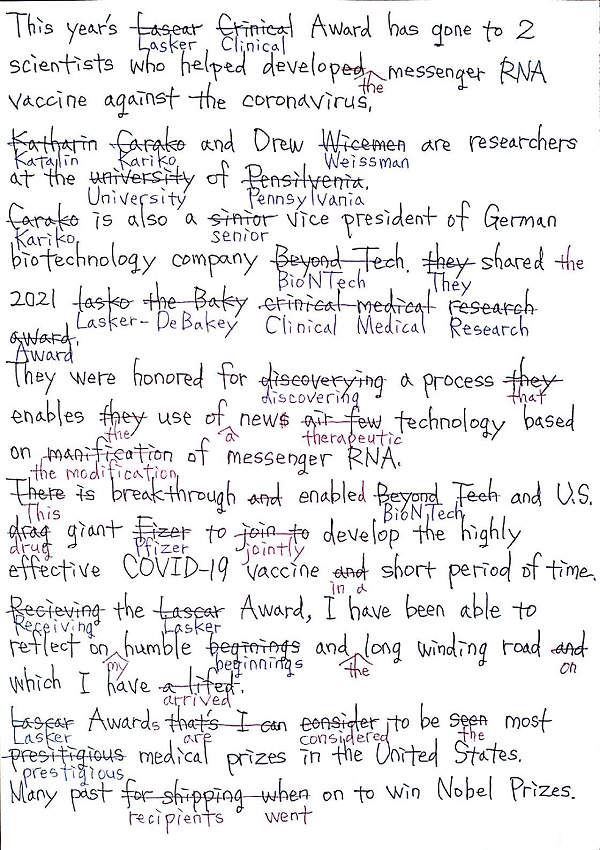 This year's Lasear Crinical Award has gone to 2
Lasker Clinical
scientists who helped developed messenger RNA
the
vaccine against the coronavirus.
Katharin Carako and Drew Wicemen are researchers
Katalin Kariko Weissman
at the university of Pensilvenia.
University Pennsylvania
Carako is also a sinior vice president of German
Kariko senior
biotechnology company Beyond Tech. they shared the
BioNTech They
2021 tasko the Baky crinical medical research
Lasker-DeBakey Clinical Medical Research
award.
Award
They were honored for discoverying a process they
discovering that
enables they use of news air few technology based
the a therapeutic
on manification of messenger RNA.
the modification
There is breakthrough and enabled Beyond Tech and U.S.
This BioNTech
drag giant Fizer to join to develop the highly
drug Pfizer jointly
effective COVID-19 vaccine and short period of time.
in a
Recieving the Lascar Award, I have been able to
Receiving Lasker
reflect on humble beginings and long winding road and
my beginnings the on
which I have a lifed.
arrived
Lascar Awards that's I can consider to be seen most
Lasker are considered the
presitigious medical prizes in the United States.
prestigious
Many past for shipping when on to win Nobel Prizes.
recipients went